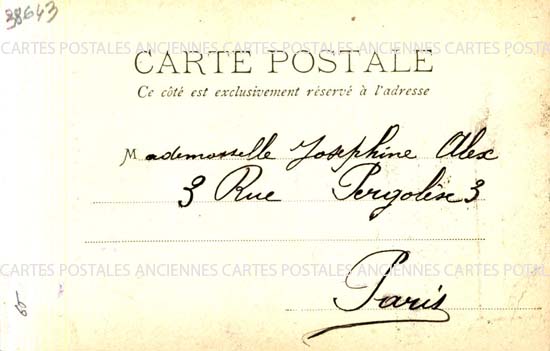 38643
CARTES POSTALES ANCIENNES CARTES POSTALES ANCIENNES CARTES POSTALES
CARTE POSTALE
Ce côté est exclusivement réservé à l'adresse
Mademosselle Josephine Alex
3 Rue Pergolèse 3
CARTES POSTALES ANCIENNES CARTES POSTALES ANCIENNES CARTES POSTALES
Paris